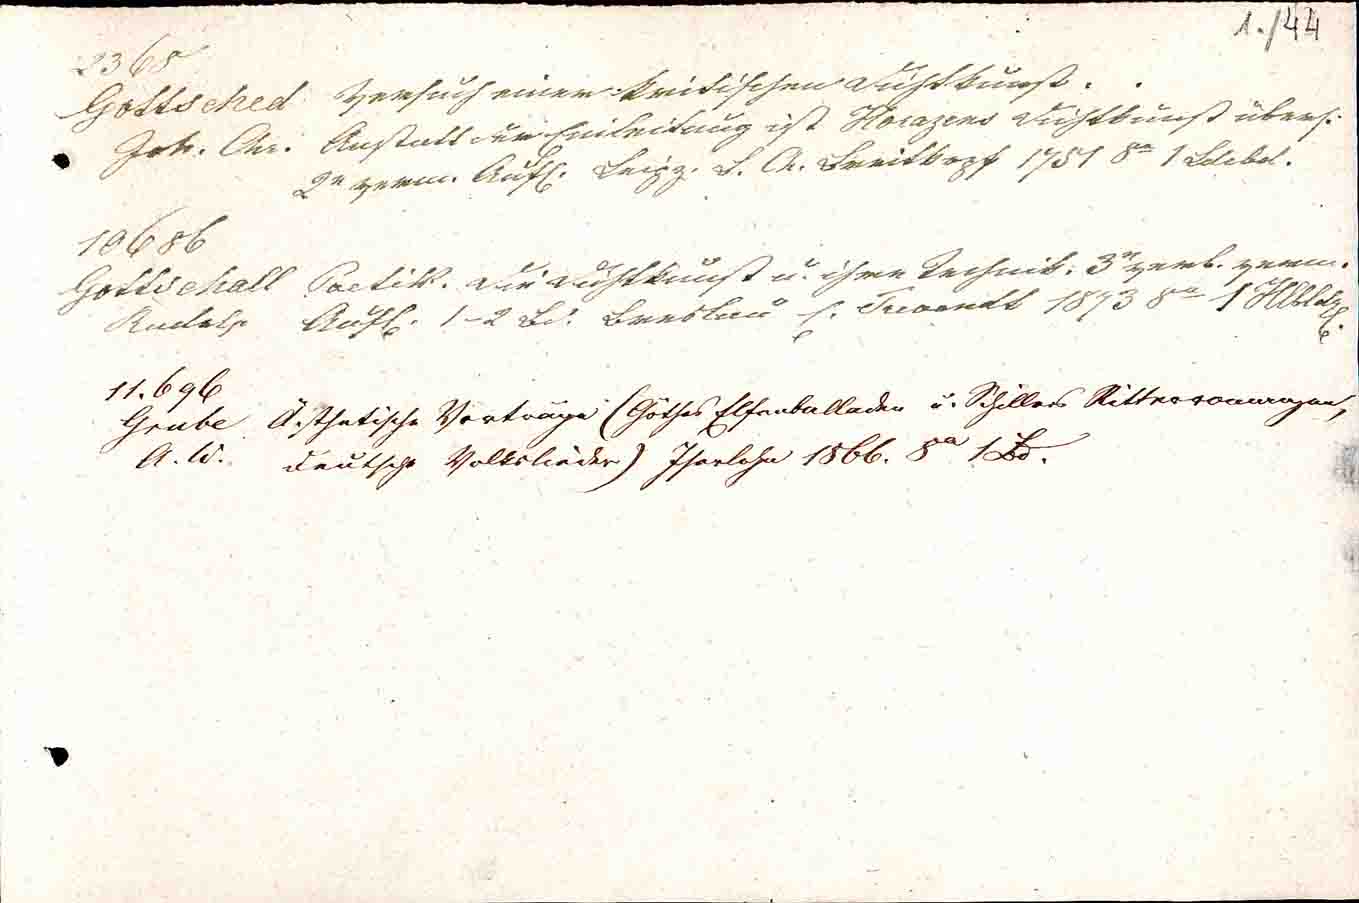 1./44
2368
Gottsched Versuch einer kritischen Dichtkunst.
Joh. Chr. Anstatt der Einleitung ist Horazens Dichtkunst übers.
2e verm. Aufl. Leipz. B. Ch. Breitkopf 1751 8º 1 Ldrbd.
10686
Gottschall Poetik. Die Dichtkunst u. ihre Technik. 3e verb. verm.
Rudolf Aufl. 1-2 Bd. Breslau E. Trewendt 1873 8º 1
11.696
Grube Ästhetische Vorträge (Göthes Elfenballaden u. Schillers Ritterromanzen,
A. W. deutsche Volkslieder) Iserlohn 1866. 8º 1 Bd.